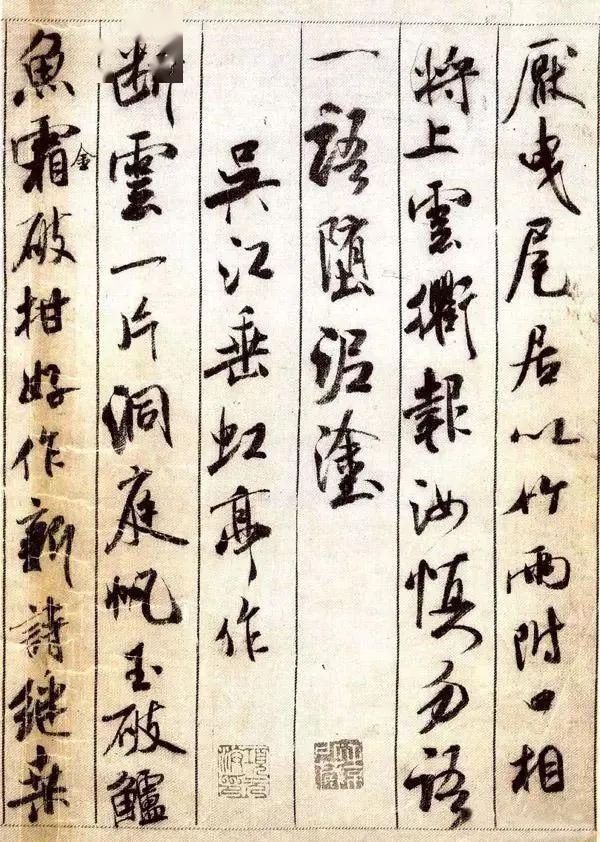 厭曳尾居以竹兩附口相
將上雲衢報汝慎勿語
一語墮泥塗
吳江垂虹亭作
断雲一片洞庭帆玉破鱸
魚霜金破柑好作新詩繼桑